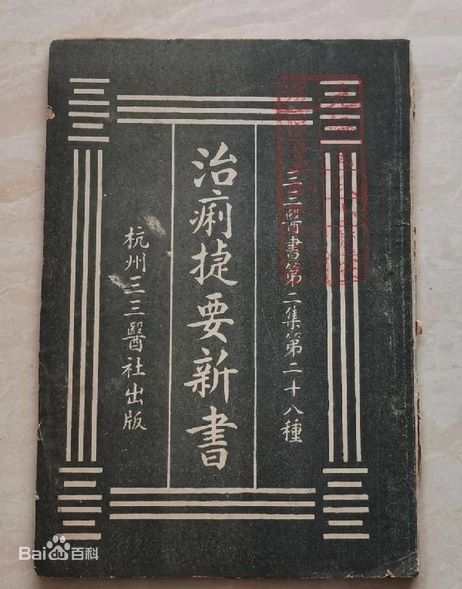 三三醫書第二集第二十八種
治痢捷要新書
杭州三三醫社出版
Bai百科